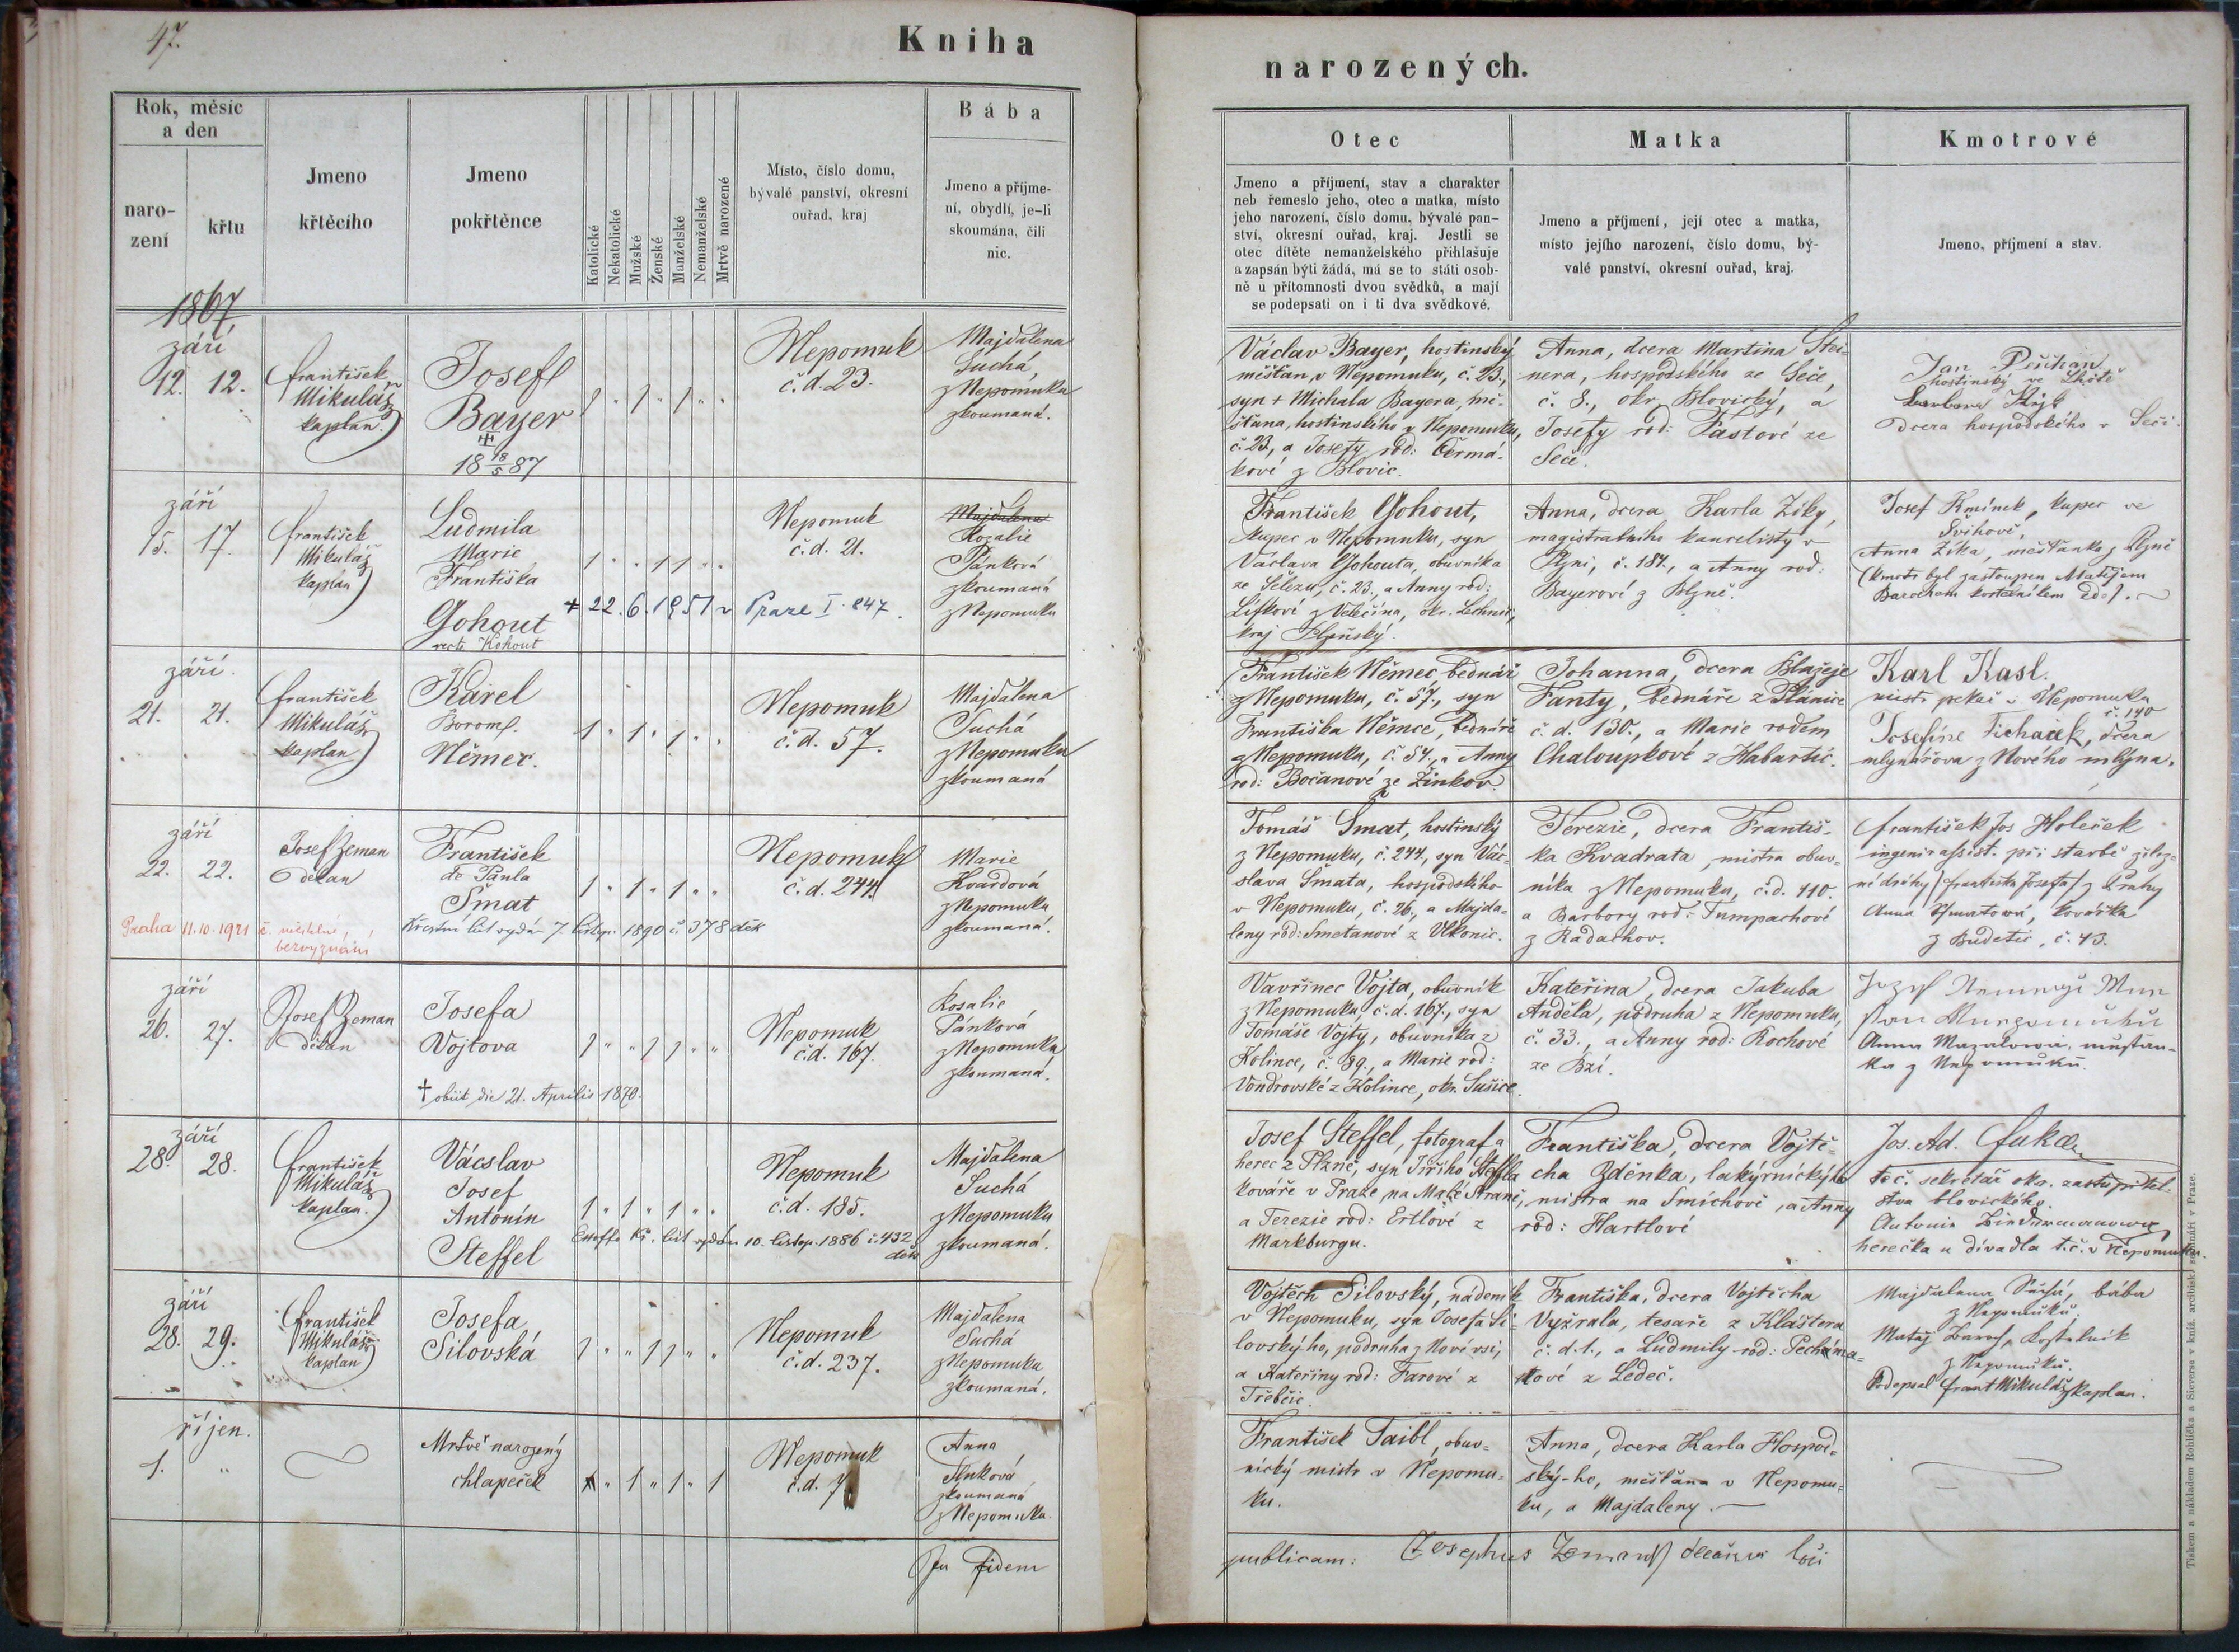 47.
Kniha
narozených.
Rok, měsíc
a den
naro-
zení
křtu
Jmeno
křtěcího
Jmeno
pokřtěnce
Katolické
Nekatolické
Mužské
Ženské
Manželské
Nemanželské
Mrtvě narozené
Místo, číslo domu,
bývalé panství, okresní
ouřad, kraj
Bába
Jmeno a příjme-
ní, obydlí, je-li
skoumána, čili
nic.
Otec
Jmeno a příjmení, stav a charakter
neb řemeslo jeho, otec a matka, místo
jeho narození, číslo domu, bývalé pan-
ství, okresní ouřad, kraj. Jestli se
otec dítěte nemanželského přihlašuje
a zapsán býti žádá, má se to státi osob-
ně u přítomnosti dvou svědků, a mají
se podepsati on i ti dva svědkové.
Matka
Jmeno a příjmení, její otec a matka,
místo jejího narození, číslo domu, bý-
valé panství, okresní ouřad, kraj.
Kmotrové
Jmeno, příjmení a stav.
1867
září
12. 12.
František
Mikuláš
kaplan.
Josef
Bayer
18 18/5 87
1 " 1 " 1 " "
Nepomuk
č.d. 23.
Majdalena
Suchá,
z Nepomuka
zkoumaná.
Václav Bayer, hostinský
měšťan v Nepomuku, č. 23.,
syn + Michala Bayera, mě-
šťana, hostinského v Nepomuku,
č. 23, a Josefy rod: Čermá-
kové z Blovic.
Anna, dcera Martina Stei-
nera, hospodského ze Seče,
č. 8., okr. Blovický, a
Josefy rod: Fastové ze
Seče.
Jan
hostinský ve Lhotě
Barbora
Dcera hospodského v Seči.
září
15. 17.
František
Mikuláš
kaplan
Ludmila
Marie
Františka
Gohout
recte Kohout
1 " " 1 1 " "
+ 22.6.1951 v Praze I. 847.
Nepomuk
č.d. 21.
Majdalena
Rozalie
Pánková
zkoumaná
z Nepomuku
František Gohout,
kupec v Nepomuku, syn
Václava Gohouta, obuvníka
č. 23., a Anny rod:
Lifkové z
kraj Plzeňský.
Anna, dcera Karla Zíky,
magistratního kancelisty v
Plzni, č. 187., a Anny rod:
Bayerové z Plzně.
Josef Kmínek, kupec ve
Švihově,
Anna Zíka, měšťanka z Plzně
(kmotr byl zastoupen Matějem
Barochem kostelníkem zde).
září.
21. 21.
František
Mikuláš
kaplan
Karel
Borom.
Němec.
1 " 1 " 1 " "
Nepomuk
č.d. 57.
Majdalena
Suchá
z Nepomuku
zkoumaná
František Němec, bednář
z Nepomuku, č. 57., syn
Františka Němce, bednáře
z Nepomuku, č. 57., a Anny
rod: Bočanové ze Žinkov.
Johanna, dcera Blažeje
Fanty, bednáře z Plánice
č. d. 130., a Marie rodem
Chaloupkové z Habartic.
Karl Kasl.
mistr pekař v Nepomuku
č. 140
Josefine Tichaček, dcera
mlynářova z Nového mlýna.
září
22. 22.
Josef Zeman
děkan
František
de Paula
Šmat
1 " 1 " 1 " "
Nepomuk
č.d. 244.
Marie
Kvardová
z Nepomuku
zkoumaná.
Praha 11.10.1921 bezvyznání
Křestní list vydán 7. listop. 1890 č. 378 děk
Tomáš Šmat, hostinský
z Nepomuku, č. 244., syn Vác-
slava Šmata, hospodského
v Nepomuku, č. 26., a Majda-
leny rod: Smetanové z Vlkonic.
Terezie, dcera Františ-
ka Kvadrata, mistra obuv-
níka z Nepomuku, č.d. 110.
a Barbory rod: Tumpachové
z Radachov.
František Jos Holeček
ingenir assist. při stavbě želez-
né dráhy (Františka Josefa) z Prahy
Anna Šmatová, kovářka
z Budětic, č. 43.
září
26. 27.
Josef Zeman
děkan
Josefa
Vojtova
1 " " 1 1 " "
† obiit die 21. Aprilis 1870.
Nepomuk
č.d. 167.
Rosalie
Pánková
z Nepomuku
zkoumaná.
Vavřinec Vojta, obuvník
z Nepomuku č.d. 167., syn
Tomáše Vojty, obuvníka z
Kolince, č. 39., a Marie rod:
Vondrovské z Kolince, okr. Sušice.
Kateřina, dcera Jakuba
Anděla, podruha z Nepomuku,
č. 33., a Anny rod: Rochové
ze Bzí.
Anna Mazalowa, mušťan-
ka z Nepomuku.
září
28. 28.
František
Mikuláš
kaplan.
Vácslav
Josef
Antonín
Steffel
1 " 1 " 1 " "
kř. list vydán 10. listop. 1886 č. 432
děk
Nepomuk
č.d. 185.
Majdalena
Suchá
z Nepomuku
zkoumaná.
Josef Steffel, fotograf a
herec z Plzně, syn Jiřího Steffla
kováře v Praze na Malé Straně,
a Terezie rod: Ertlové z
Markburgu.
Františka, dcera Vojtě-
cha Zděnka, lakýrnického
mistra na Smíchově, a Anny
rod: Hartlové
Jos. Ad.
t.č. sekretář okr. zastupitel-
stva blovického.
Antonie Lindurmanowa
herečka u divadla t.č. v Nepomuku.
září
28. 29.
František
Mikuláš
kaplan
Josefa
Silovská
1 " " 1 1 " "
Nepomuk
č.d. 237.
Majdalena
Suchá
z Nepomuku
zkoumaná.
Vojtěch Silovský, nádeník
v Nepomuku, syn Josefa Si-
lovského, podruha z Nové vsi,
a Kateřiny rod: Farové z
Třebčic.
Františka, dcera Vojtěcha
Vyžrala, tesaře z Kláštera
č. d. 1., a Ludmily rod: Pecháma-
kové z Ledeč.
Majdalena Suchá, bába
z Nepomuku,
Matěj Baroch, kostelník
z Nepomuku.
Podepsal Frant Mikuláš kaplan.
říjen.
1. "
Mrtvě narozený
chlapeček
1 " 1 " 1 " 1
Nepomuk
č.d. 7
Anna
zkoumaná
z Nepomuku.
František Taibl, obuv-
nický mistr v Nepomu-
ku.
Anna, dcera Karla Hospod-
ský-ho, měšťana v Nepomu-
ku, a Majdaleny.
In Fidem
publicam: Josephus Zeman loci
Tiskem a nákladem Rohlíčka a Sieverse v kníž. arcibisk. semináři v Praze.